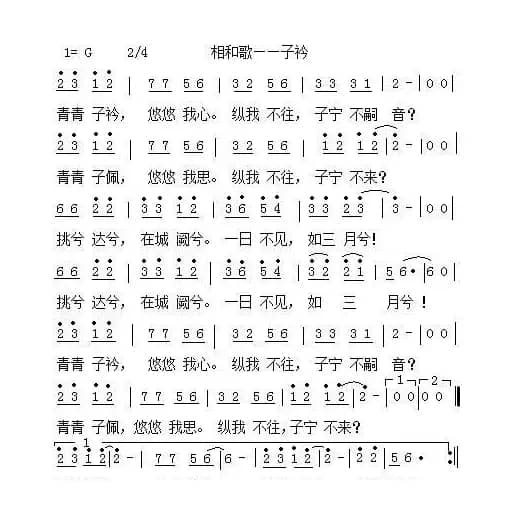 1= G 2/4 相和歌——子衿
2 3 1 2 | 7 7 5 6 | 3 2 5 6 | 3 3 3 1 | 2 - | 0 0 |
青青 子衿， 悠悠 我心。 纵我 不往， 子宁 不嗣 音？
2 3 1 2 | 7 7 5 6 | 3 2 5 6 | 1 2 1 2 | 2 - | 0 0 |
青青 子佩， 悠悠 我思。 纵我 不往， 子宁 不来？
6 6 2 2 | 3 3 1 2 | 3 6 5 4 | 3 3 2 3 | 3 - | 0 0 |
挑兮 达兮， 在城 阙兮。 一日 不见， 如三 月兮！
6 6 2 2 | 3 3 1 2 | 3 6 5 4 | 3 2 2 1 | 5 6 · | 6 0 |
挑兮 达兮， 在城 阙兮。 一日 不见， 如 三 月兮 ！
2 3 1 2 | 7 7 5 6 | 3 2 5 6 | 3 3 3 1 | 2 - | 0 0 |
青青 子衿， 悠悠 我心。 纵我 不往， 子宁 不嗣 音？
1 2
2 3 1 2 | 7 7 5 6 | 3 2 5 6 | 1 2 1 2 | 2 - | 0 0 0 0 :||
青青 子佩，悠悠 我思。 纵我 不往，子宁 不来？
1
2 3 1 2 | 2 - | 7 7 5 6 | 6 - | 3 2 5 6 | 3 3 1 2 | 2 - | 2 2 5 6 · :||